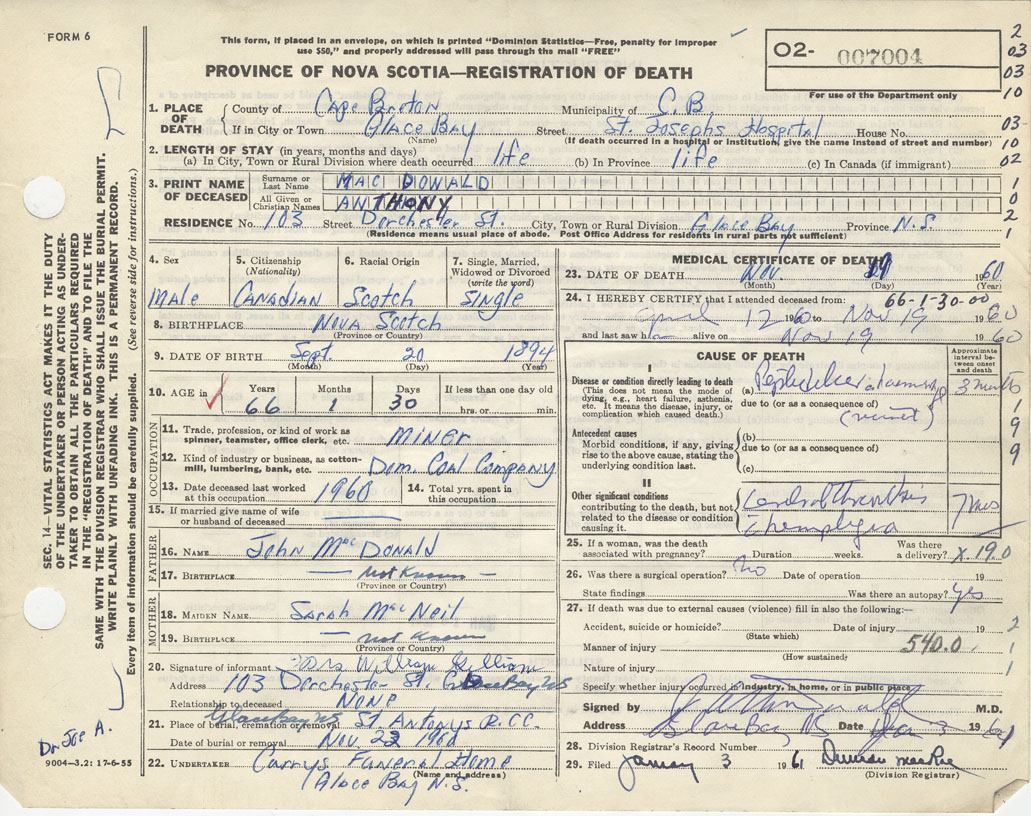 FORM 6
This form, if placed in an envelope, on which is printed "Dominion Statistics—Free, penalty for improper
use $50," and properly addressed will pass through the mail "FREE"
PROVINCE OF NOVA SCOTIA—REGISTRATION OF DEATH
02- 007004
For use of the Department only
2
03
03
10
03-
10
02
1
0
2
1
SEC. 14—VITAL STATISTICS ACT MAKES IT THE DUTY
OF THE UNDERTAKER OR PERSON ACTING AS UNDER-
TAKER TO OBTAIN ALL THE PARTICULARS REQUIRED
IN THE "REGISTRATION OF DEATH" AND TO FILE THE
SAME WITH THE DIVISION REGISTRAR WHO SHALL ISSUE THE BURIAL PERMIT.
WRITE PLAINLY WITH UNFADING INK. THIS IS A PERMANENT RECORD.
Every item of information should be carefully supplied. (See reverse side for instructions.)
1. PLACE OF DEATH
County of Cape Breton Municipality of C.B.
If in City or Town Glace Bay Street St. Josephs Hospital House No.
(Name) (If death occurred in a hospital or institution, give the name instead of street and number)
2. LENGTH OF STAY (in years, months and days)
(a) In City, Town or Rural Division where death occurred life (b) In Province life (c) In Canada (if immigrant)
3. PRINT NAME OF DECEASED
Surname or Last Name MAC DONALD
All Given or Christian Names ANTHONY
RESIDENCE No. 103 Street Dorchester St. City, Town or Rural Division Glace Bay Province N.S.
(Residence means usual place of abode. Post Office Address for residents in rural parts not sufficient)
4. Sex Male
5. Citizenship (Nationality) Canadian
6. Racial Origin Scotch
7. Single, Married, Widowed or Divorced (write the word) Single
8. BIRTHPLACE Nova Scotch
(Province or Country)
9. DATE OF BIRTH Sept. 20 1894
(Month) (Day) (Year)
10. AGE in Years 66 Months 1 Days 30 If less than one day old hrs. or min.
OCCUPATION
11. Trade, profession, or kind of work as spinner, teamster, office clerk, etc. Miner
12. Kind of industry or business, as cotton-mill, lumbering, bank, etc. Dom. Coal Company
13. Date deceased last worked at this occupation 1960
14. Total yrs. spent in this occupation
15. If married give name of wife or husband of deceased
FATHER
16. NAME John MacDonald
17. BIRTHPLACE — not Known —
(Province or Country)
MOTHER
18. MAIDEN NAME Sarah MacNeil
19. BIRTHPLACE — not Known
(Province or Country)
20. Signature of informant Mrs William
Address 103 Dorchester St. Glace Bay NS
Relationship to deceased NONE
21. Place of burial, cremation or removal Glace Bay NS St. Antonys R.C.C.
Date of burial or removal Nov. 22 1960
22. UNDERTAKER Currys Funeral Home
(Name and address)
Glace Bay N.S.
Dr Joe A.
9004—3.2: 17-6-55
MEDICAL CERTIFICATE OF DEATH
23. DATE OF DEATH Nov. 19 1960
(Month) (Day) (Year)
24. I HEREBY CERTIFY that I attended deceased from: 66-1-30-00
April 12 1960 to Nov 19 1960
and last saw h alive on Nov 19 1960
CAUSE OF DEATH
Approximate interval between onset and death
I
Disease or condition directly leading to death (a) 3 months
(This does not mean the mode of dying, e.g., heart failure, asthenia, etc. It means the disease, injury, or complication which caused death.)
due to (or as a consequence of)
Antecedent causes
Morbid conditions, if any, giving rise to the above cause, stating the underlying condition last.
(b)
due to (or as a consequence of)
(c)
II
Other significant conditions contributing to the death, but not related to the disease or condition causing it.
Cerebral Thrombosis
7 mos
1
9
9
25. If a woman, was the death associated with pregnancy? Duration weeks. Was there a delivery? X 19.0
26. Was there a surgical operation? No Date of operation 19
State findings Was there an autopsy? yes
27. If death was due to external causes (violence) fill in also the following:—
Accident, suicide or homicide? Date of injury 19
(State which)
Manner of injury 540.0
(How sustained)
Nature of injury
2
1
1
Specify whether injury occurred in industry, in home, or in public place
Signed by M.D.
Address Glace Bay NS Date Jan 3 1961
28. Division Registrar's Record Number
29. Filed January 3 1961 Duncan MacRae
(Division Registrar)